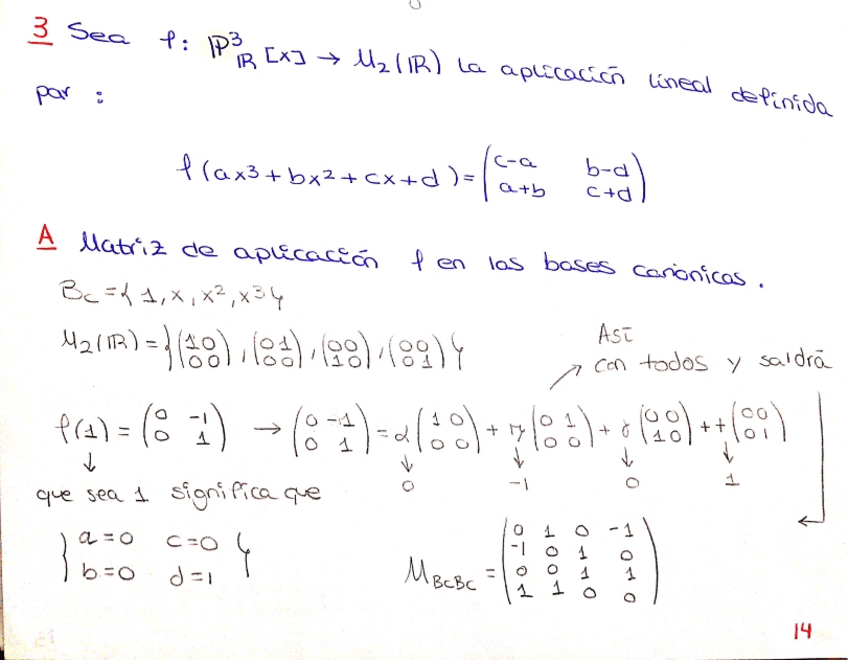 3 Sea f: ℙ³_ℝ[x] → M₂(ℝ) la aplicación lineal definida
por :
f(ax³+bx²+cx+d)= (c-a b-d
a+b c+d)
A Matriz de aplicación f en las bases canónicas.
Bc={1,x,x²,x³}
M₂(ℝ)={(1 0 / 0 0), (0 1 / 0 0), (0 0 / 1 0), (0 0 / 0 1)}
Así
con todos y saldrá
f(1) = (0 -1 / 0 1) → (0 -1 / 0 1) = α(1 0 / 0 0) + η(0 1 / 0 0) + γ(0 0 / 1 0) + t(0 0 / 0 1)
0 -1 0 1
que sea 1 significa que
{a=0 c=0
b=0 d=1}
M_BcBc = (0 1 0 -1
-1 0 1 0
0 0 1 1
1 1 0 0)
14